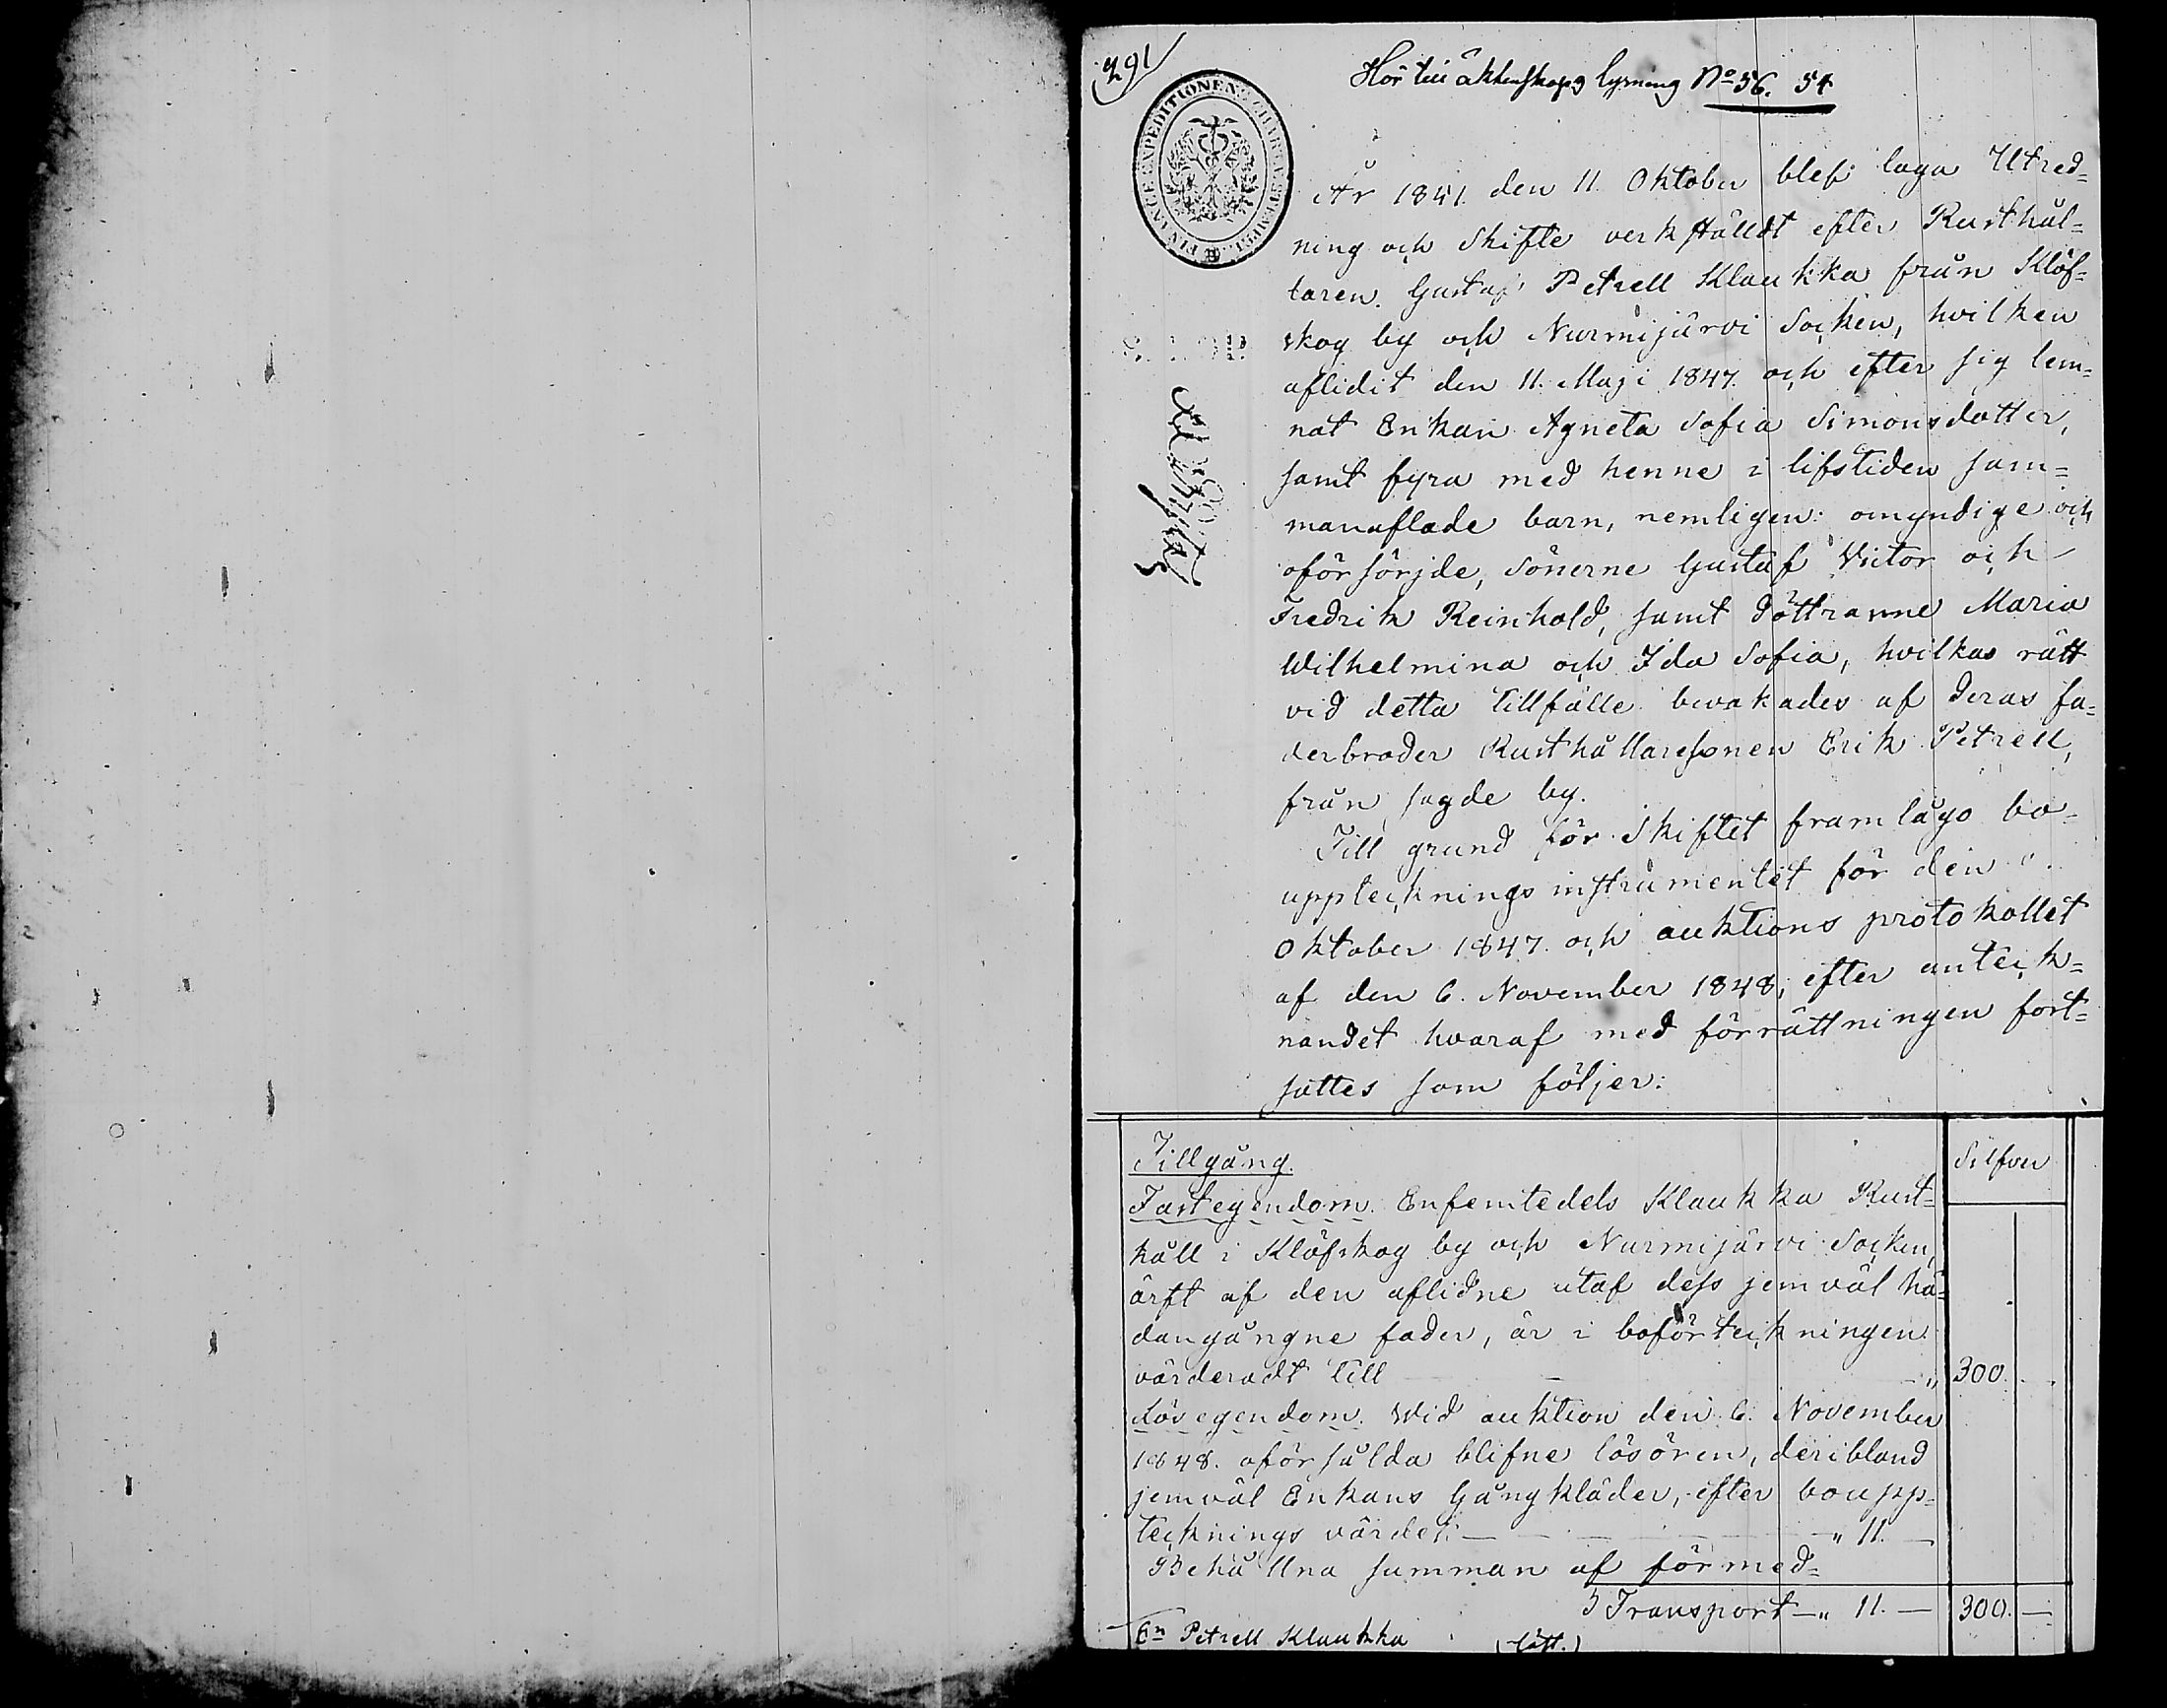 291
Hör till äktenskaps lysning No 56. 54
FINANCE EXPEDITIONEN CHARTÆ STEMPEL
År 1851. den 11. Oktober blef laga Utred=
ning och Skifte verkstäldt efter Rusthål=
laren Gustaf Petrell Klaukka från Klöf=
skog by och Nurmijärvi Socken, hvilken
aflidit den 11. Maji 1847. och efter sig lem=
nat Enkan Agneta Sofia Simonsdotter,
samt fyra med henne i lifstiden sam=
manaflade barn, nemligen: omyndige och
oförsörjde, sönerne Gustaf Victor och
Fredrik Reinhold, samt döttrarne Maria
Wilhelmina och Ida Sofia, hvilkas rätt
vid detta tillfälle bevakades af deras fa=
derbroder Rusthållaresonen Erik Petrell,
från sagde by.
Till grund för skiftet framlågo bo=
upptecknings instrumentet för den
Oktober 1847. och auktions protokollet
af den 6. November 1848, efter anteck=
nandet hvaraf med förrättningen fort=
sattes som följer:
Tillgång. Silfver
Fastegendom. Enfemtedels Klaukka Rust=
håll i Klöfskog by och Nurmijärvi Socken,
ärft af den aflidne utaf dess jemväl hä=
dangångne fader, är i boförteckningen
värderadt till — — " 300. —
Lösegendom. Wid auktion den 6. November
1848. oförsålda blifne lösören, deribland
jemväl Enkans Gångkläder, efter boupp=
tecknings värdet: — — " 11. —
Behållna summan af förmed=
Transport — " 11. — 300. —
Petrell Klaukka